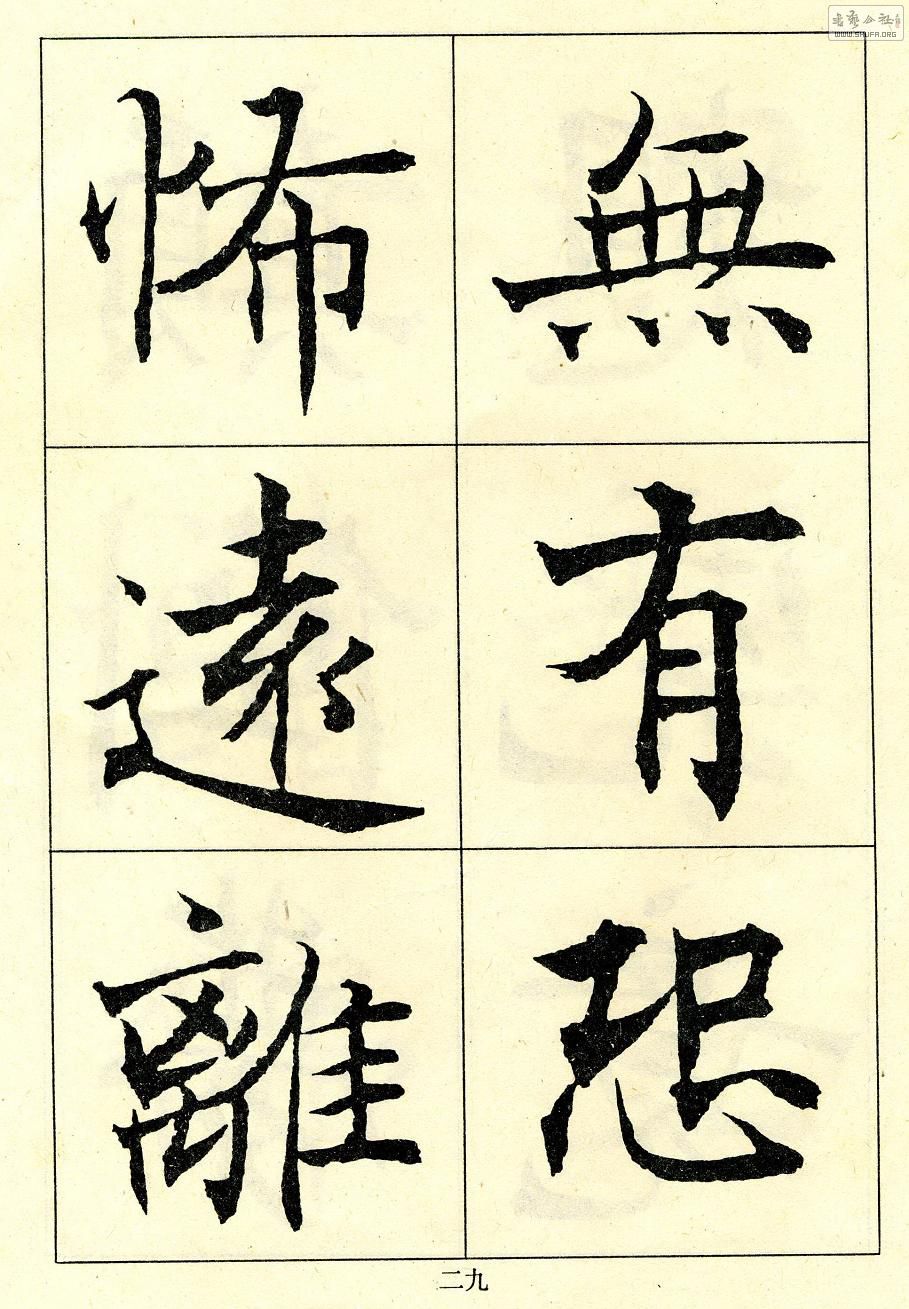 無有恐
怖遠離
二九
書藝公社
WWW.SHUFA.ORG